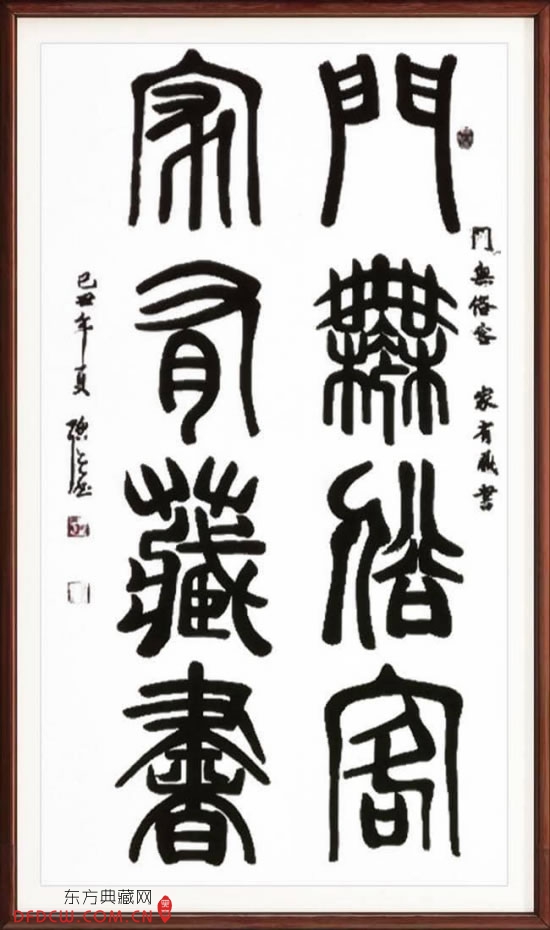 門無俗客
家有藏書
門無俗客 家有藏書
己丑年夏
东方典藏网
DFDCW.COM.CN